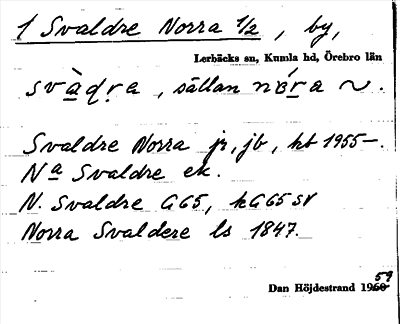 1 Svaldre Norra 1/2, by,
Lerbäcks sn, Kumla hd, Örebro län
svàdṛa, sällan nɷ́ra ~.
Svaldre Norra jr, jb, kt 1955–.
Na Svaldre ek.
N. Svaldre G65, hG65 SV
Norra Svaldere ls 1847.
Dan Höjdestrand 1960 59